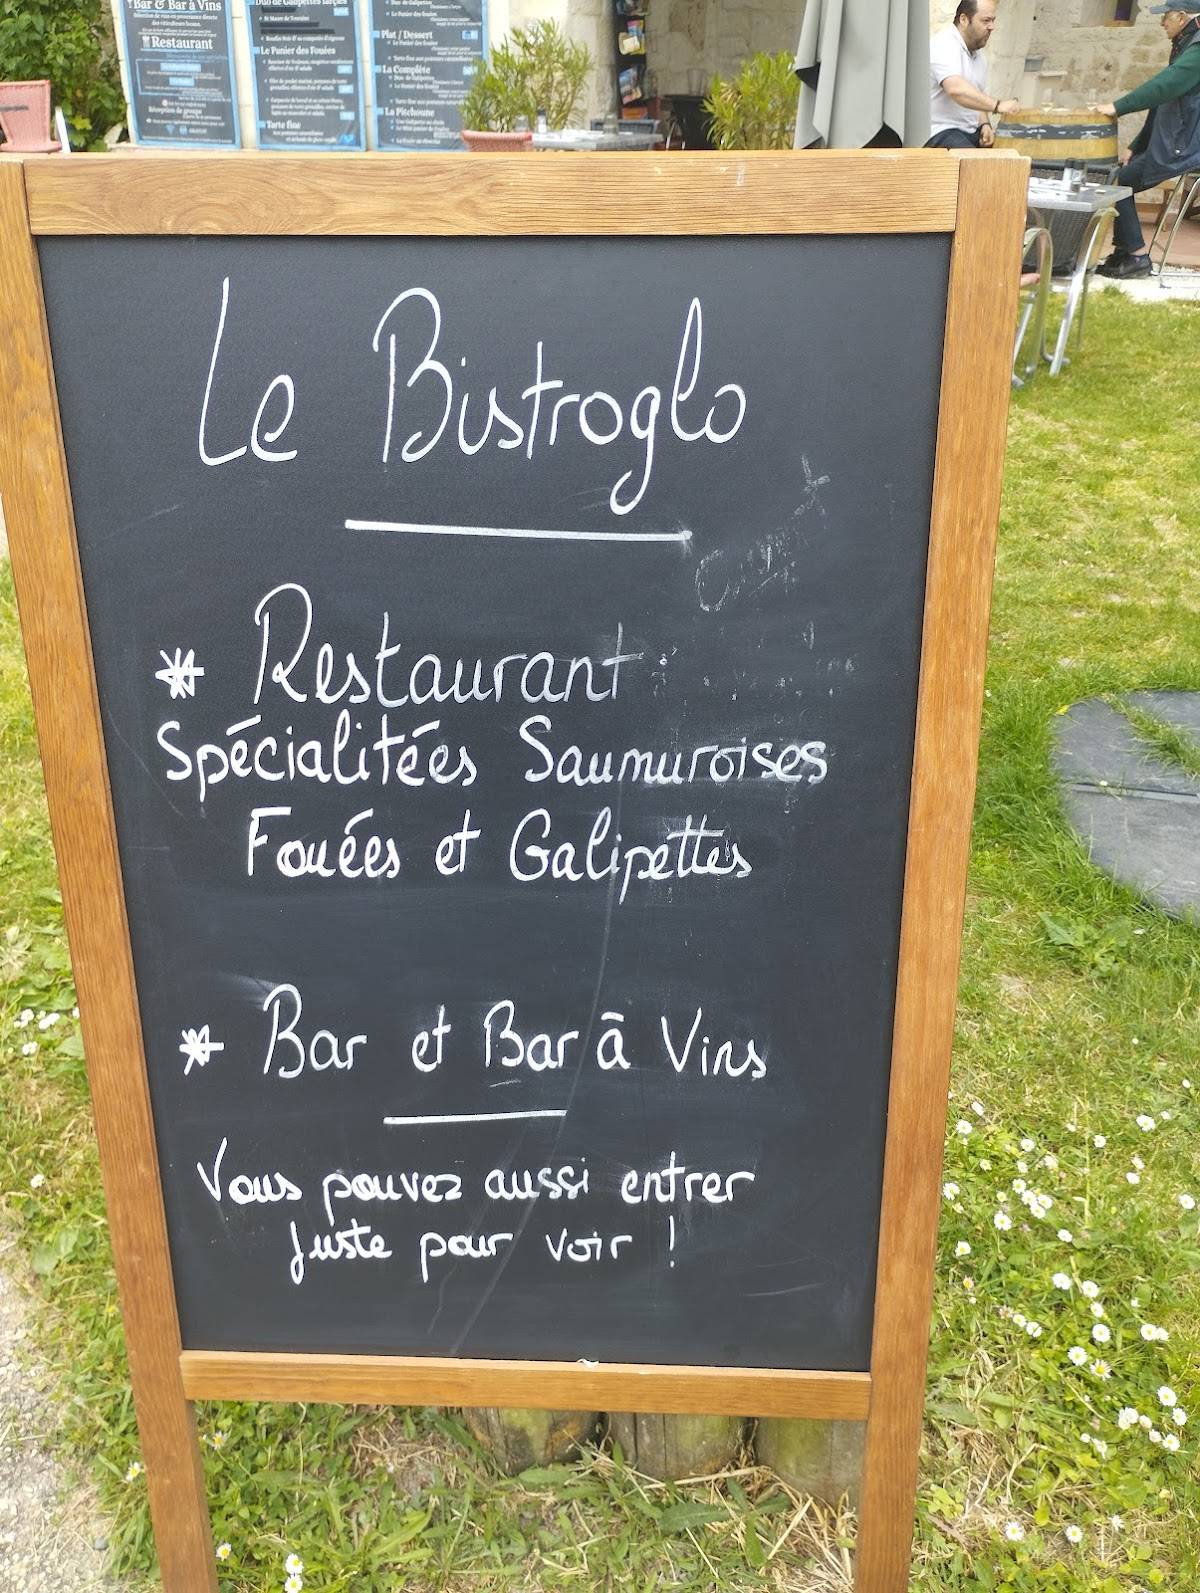 Bar & Bar à Vins
Restaurant
Duo de Galipettes farcies
Le Panier des Fouées
Tarte fine
Plat / Dessert
La Complète
La Pitchoune
Le Bistroglo
* Restaurant
Spécialitées Saumuroises
Fouées et Galipettes
* Bar et Bar à Vins
Vous pouvez aussi entrer
juste pour voir !